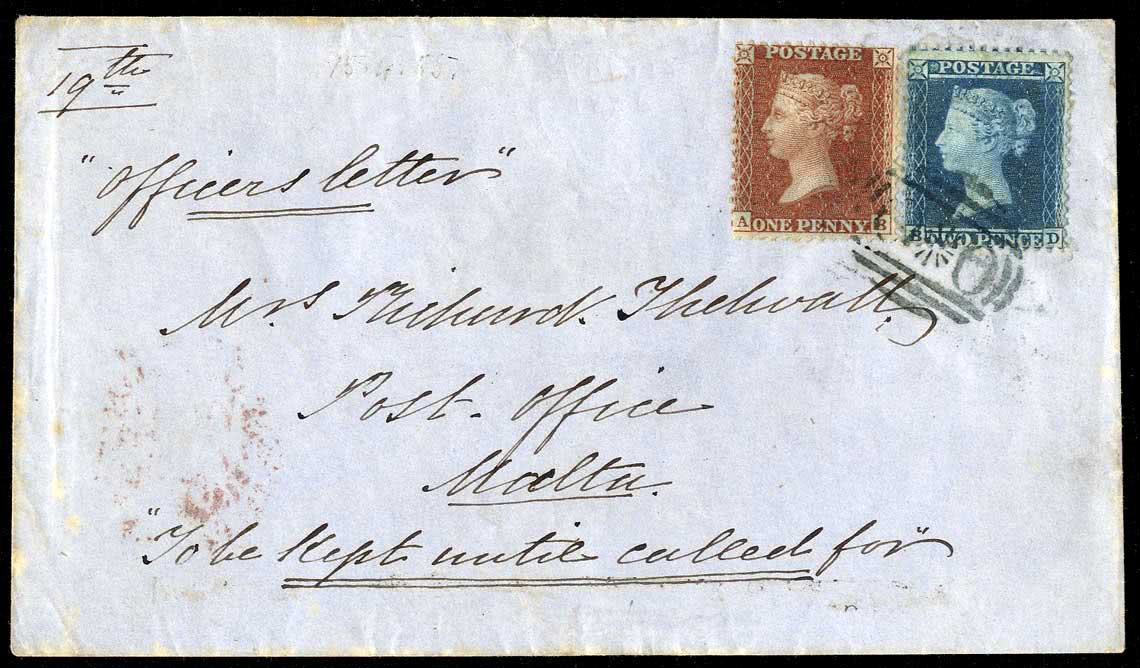 19th
15.4.55
POSTAGE
A ONE PENNY B
POSTAGE
B TWO PENCE D
"Officers letter"
Mrs Richard Thelwall,
Post. Office
Malta.
"To be kept until called for"